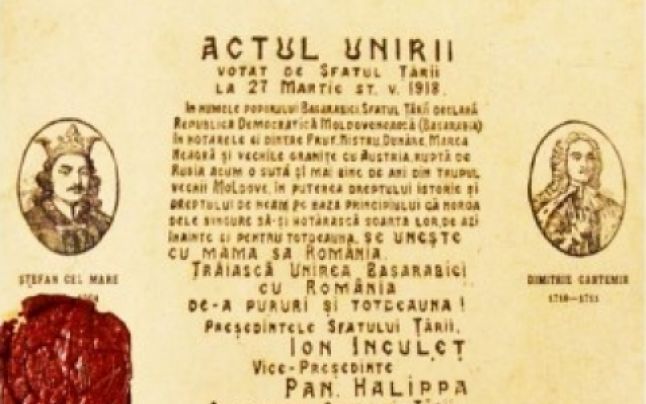 ACTUL UNIRII
VOTAT DE SFATUL ȚĂRII
LA 27 MARTIE ST. V. 1918.
ÎN NUMELE POPORULUI BASARABIEI, SFATUL ȚĂRII DECLARĂ
REPUBLICA DEMOCRATICĂ MOLDOVENEASCĂ (BASARABIA)
ÎN HOTARELE EI DINTRE PRUT, NISTRU, DUNĂRE, MAREA
NEAGRĂ ȘI VECHILE GRANIȚE CU AUSTRIA, RUPTĂ DE
RUSIA ACUM O SUTĂ ȘI MAI BINE DE ANI DIN TRUPUL
VECHII MOLDOVE, ÎN PUTEREA DREPTULUI ISTORIC ȘI
DREPTULUI DE NEAM PE BAZA PRINCIPIULUI CĂ NOROA
DELE SINGURE SĂ-ȘI HOTĂRASCĂ SOARTA LOR, DE AZI
ÎNAINTE ȘI PENTRU TOTDEAUNA, SE UNEȘTE
CU MAMA SA ROMÂNIA.
TRĂIASCĂ UNIREA BASARABIEI
CU ROMÂNIA
DE-A PURURI ȘI TOTDEAUNA!
PREȘEDINTELE SFATULUI ȚĂRII,
ION INCULEȚ
VICE-PREȘEDINTE
PAN. HALIPPA
ȚĂRII
ȘTEFAN CEL MARE
DIMITRIE CANTEMIR
1710—1711